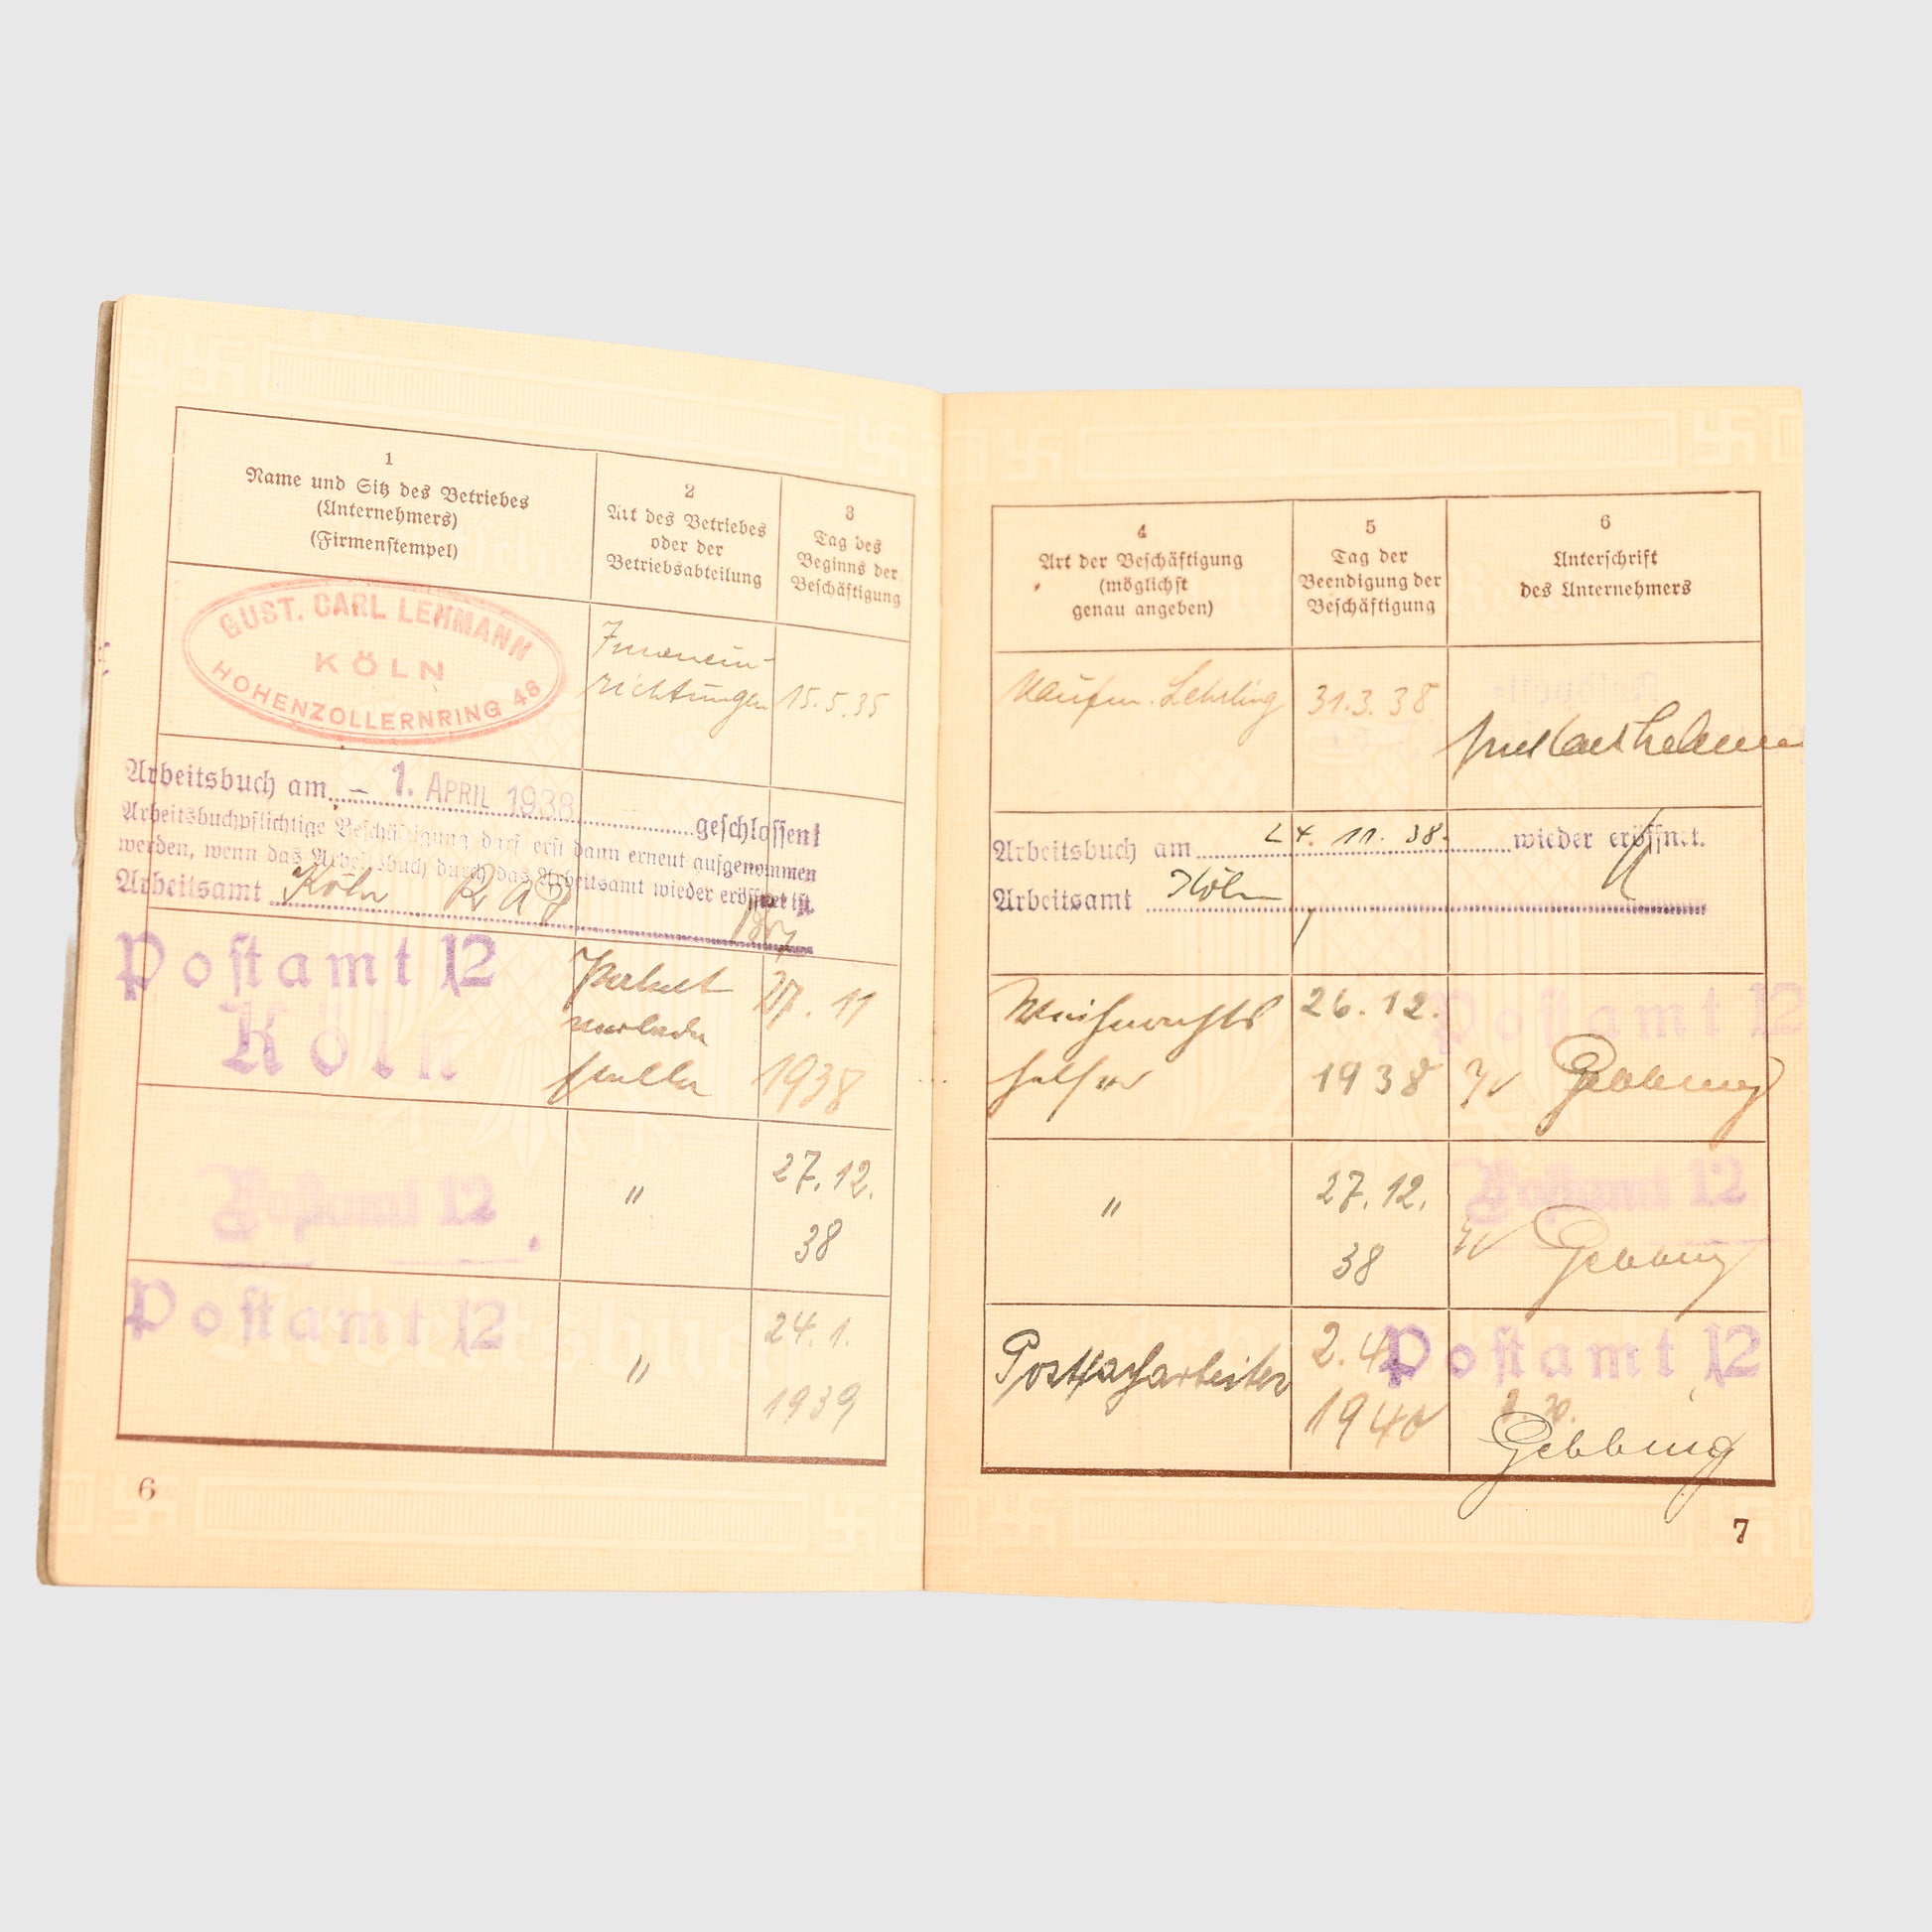 1
Name und Sitz des Betriebes
(Unternehmers)
(Firmenstempel)
2
Art des Betriebes
oder der
Betriebsabteilung
3
Tag des
Beginns der
Beschäftigung
GUST. CARL LEHMANN
KÖLN
HOHENZOLLERNRING 48
Innenein-
richtungen
15.5.35
Arbeitsbuch am – 1. APRIL 1938 geschlossen!
Arbeitsbuchpflichtige Beschäftigung darf erst dann erneut aufgenommen
werden, wenn das Arbeitsbuch durch das Arbeitsamt wieder eröffnet ist.
Arbeitsamt Köln
Postamt 12
Köln
Paket
27. 11
1938
Postamt 12
"
27.12.
38
Postamt 12
"
24.1.
1939
6
4
Art der Beschäftigung
(möglichst
genau angeben)
5
Tag der
Beendigung der
Beschäftigung
6
Unterschrift
des Unternehmers
Kaufm. Lehrling
31.3.38
Arbeitsbuch am 24. 11. 38. wieder eröffnet.
Arbeitsamt Köln
Weihnachts
helfer
26.12.
1938
Postamt 12
Gebbing
"
27.12.
38
Postamt 12
Gebbing
Postfacharbeiter
2.4.
1940
Postamt 12
Gebbing
7